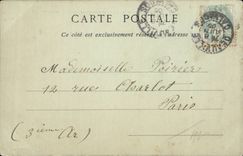 CARTE POSTALE
Ce côté est exclusivement réservé à l'adresse
Mademoiselle Poirier
12 rue Charlot
Paris
(3ième Ar)